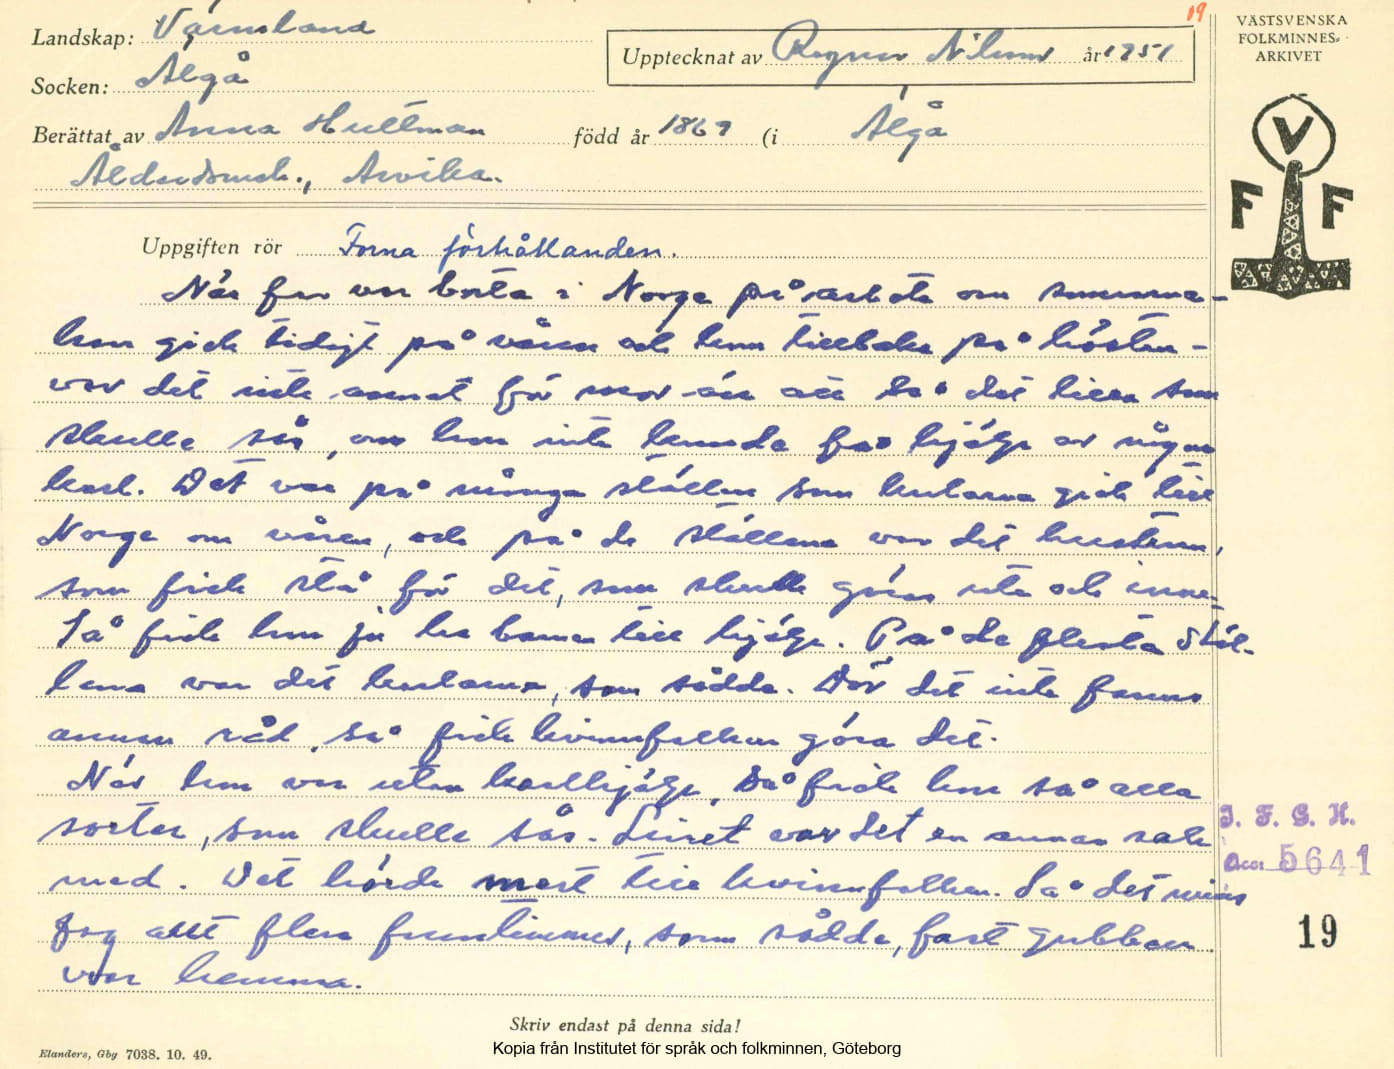 19
Landskap: Värmland
Upptecknat av Ragnar Nilsson år 1951
VÄSTSVENSKA
FOLKMINNES-
ARKIVET
Socken: Älgå
Berättat av Anna Hultman född år 1869 (i Älgå
Ålderdomsh., Arvika.
V
F F
Uppgiften rör Forna förhållanden.
När far var borta i Norge på arbete om somrarna -
han gick tidigt på våren och kom tillbaka på hösten -
var det inte annat för mor än att så det lilla som
skulle sås, om hon inte kunde få hjälp av någon
karl. Det var på många ställen som karlarna gick till
Norge om våren, och på de ställena var det hustrun,
som fick stå för det, som skulle göras ute och inne.
Så fick hon ju ha barnen till hjälp. På de flesta stäl-
lena var det karlarna, som sådde. Där det inte fanns
annan råd, så fick kvinnfolken göra det.
När hon var utan karlhjälp, så fick hon så alla
sorter, som skulle sås. Linet var det en annan sak
med. Det hörde mest till kvinnfolken. Så det minns
jag att flera fruntimmer, som sådde, fast gubben
var hemma.
I. F. G. H.
Acc. 5641
19
Skriv endast på denna sida!
Elanders, Gbg 7038. 10. 49.
Kopia från Institutet för språk och folkminnen, Göteborg